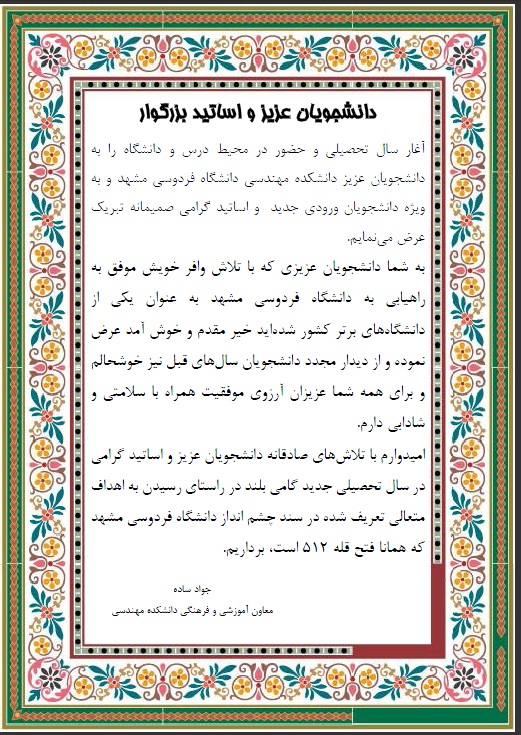 دانشجویان عزیز و اساتید بزرگوار
آغاز سال تحصیلی و حضور در محیط درس و دانشگاه را به
دانشجویان عزیز دانشکده مهندسی دانشگاه فردوسی مشهد و به
ویژه دانشجویان ورودی جدید و اساتید گرامی صمیمانه تبریک
عرض می‌نمایم.
به شما دانشجویان عزیزی که با تلاش وافر خویش موفق به
راهیابی به دانشگاه فردوسی مشهد به عنوان یکی از
دانشگاه‌های برتر کشور شده‌اید خیر مقدم و خوش آمد عرض
نموده و از دیدار مجدد دانشجویان سال‌های قبل نیز خوشحالم
و برای همه شما عزیزان آرزوی موفقیت همراه با سلامتی و
شادابی دارم.
امیدوارم با تلاش‌های صادقانه دانشجویان عزیز و اساتید گرامی
در سال تحصیلی جدید گامی بلند در راستای رسیدن به اهداف
متعالی تعریف شده در سند چشم انداز دانشگاه فردوسی مشهد
که همانا فتح قله ۵۱۲ است، برداریم.
جواد ساده
معاون آموزشی و فرهنگی دانشکده مهندسی